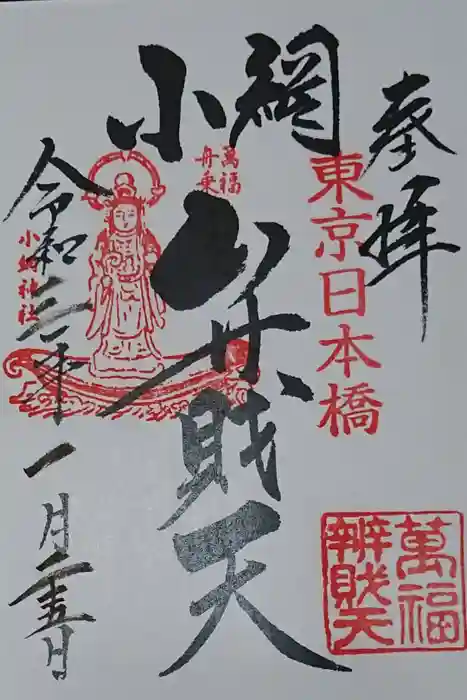 奉拝
東京日本橋
小網
萬福
舟乗
弁財天
小網神社
令和三年一月二十五日
萬福
辨財天